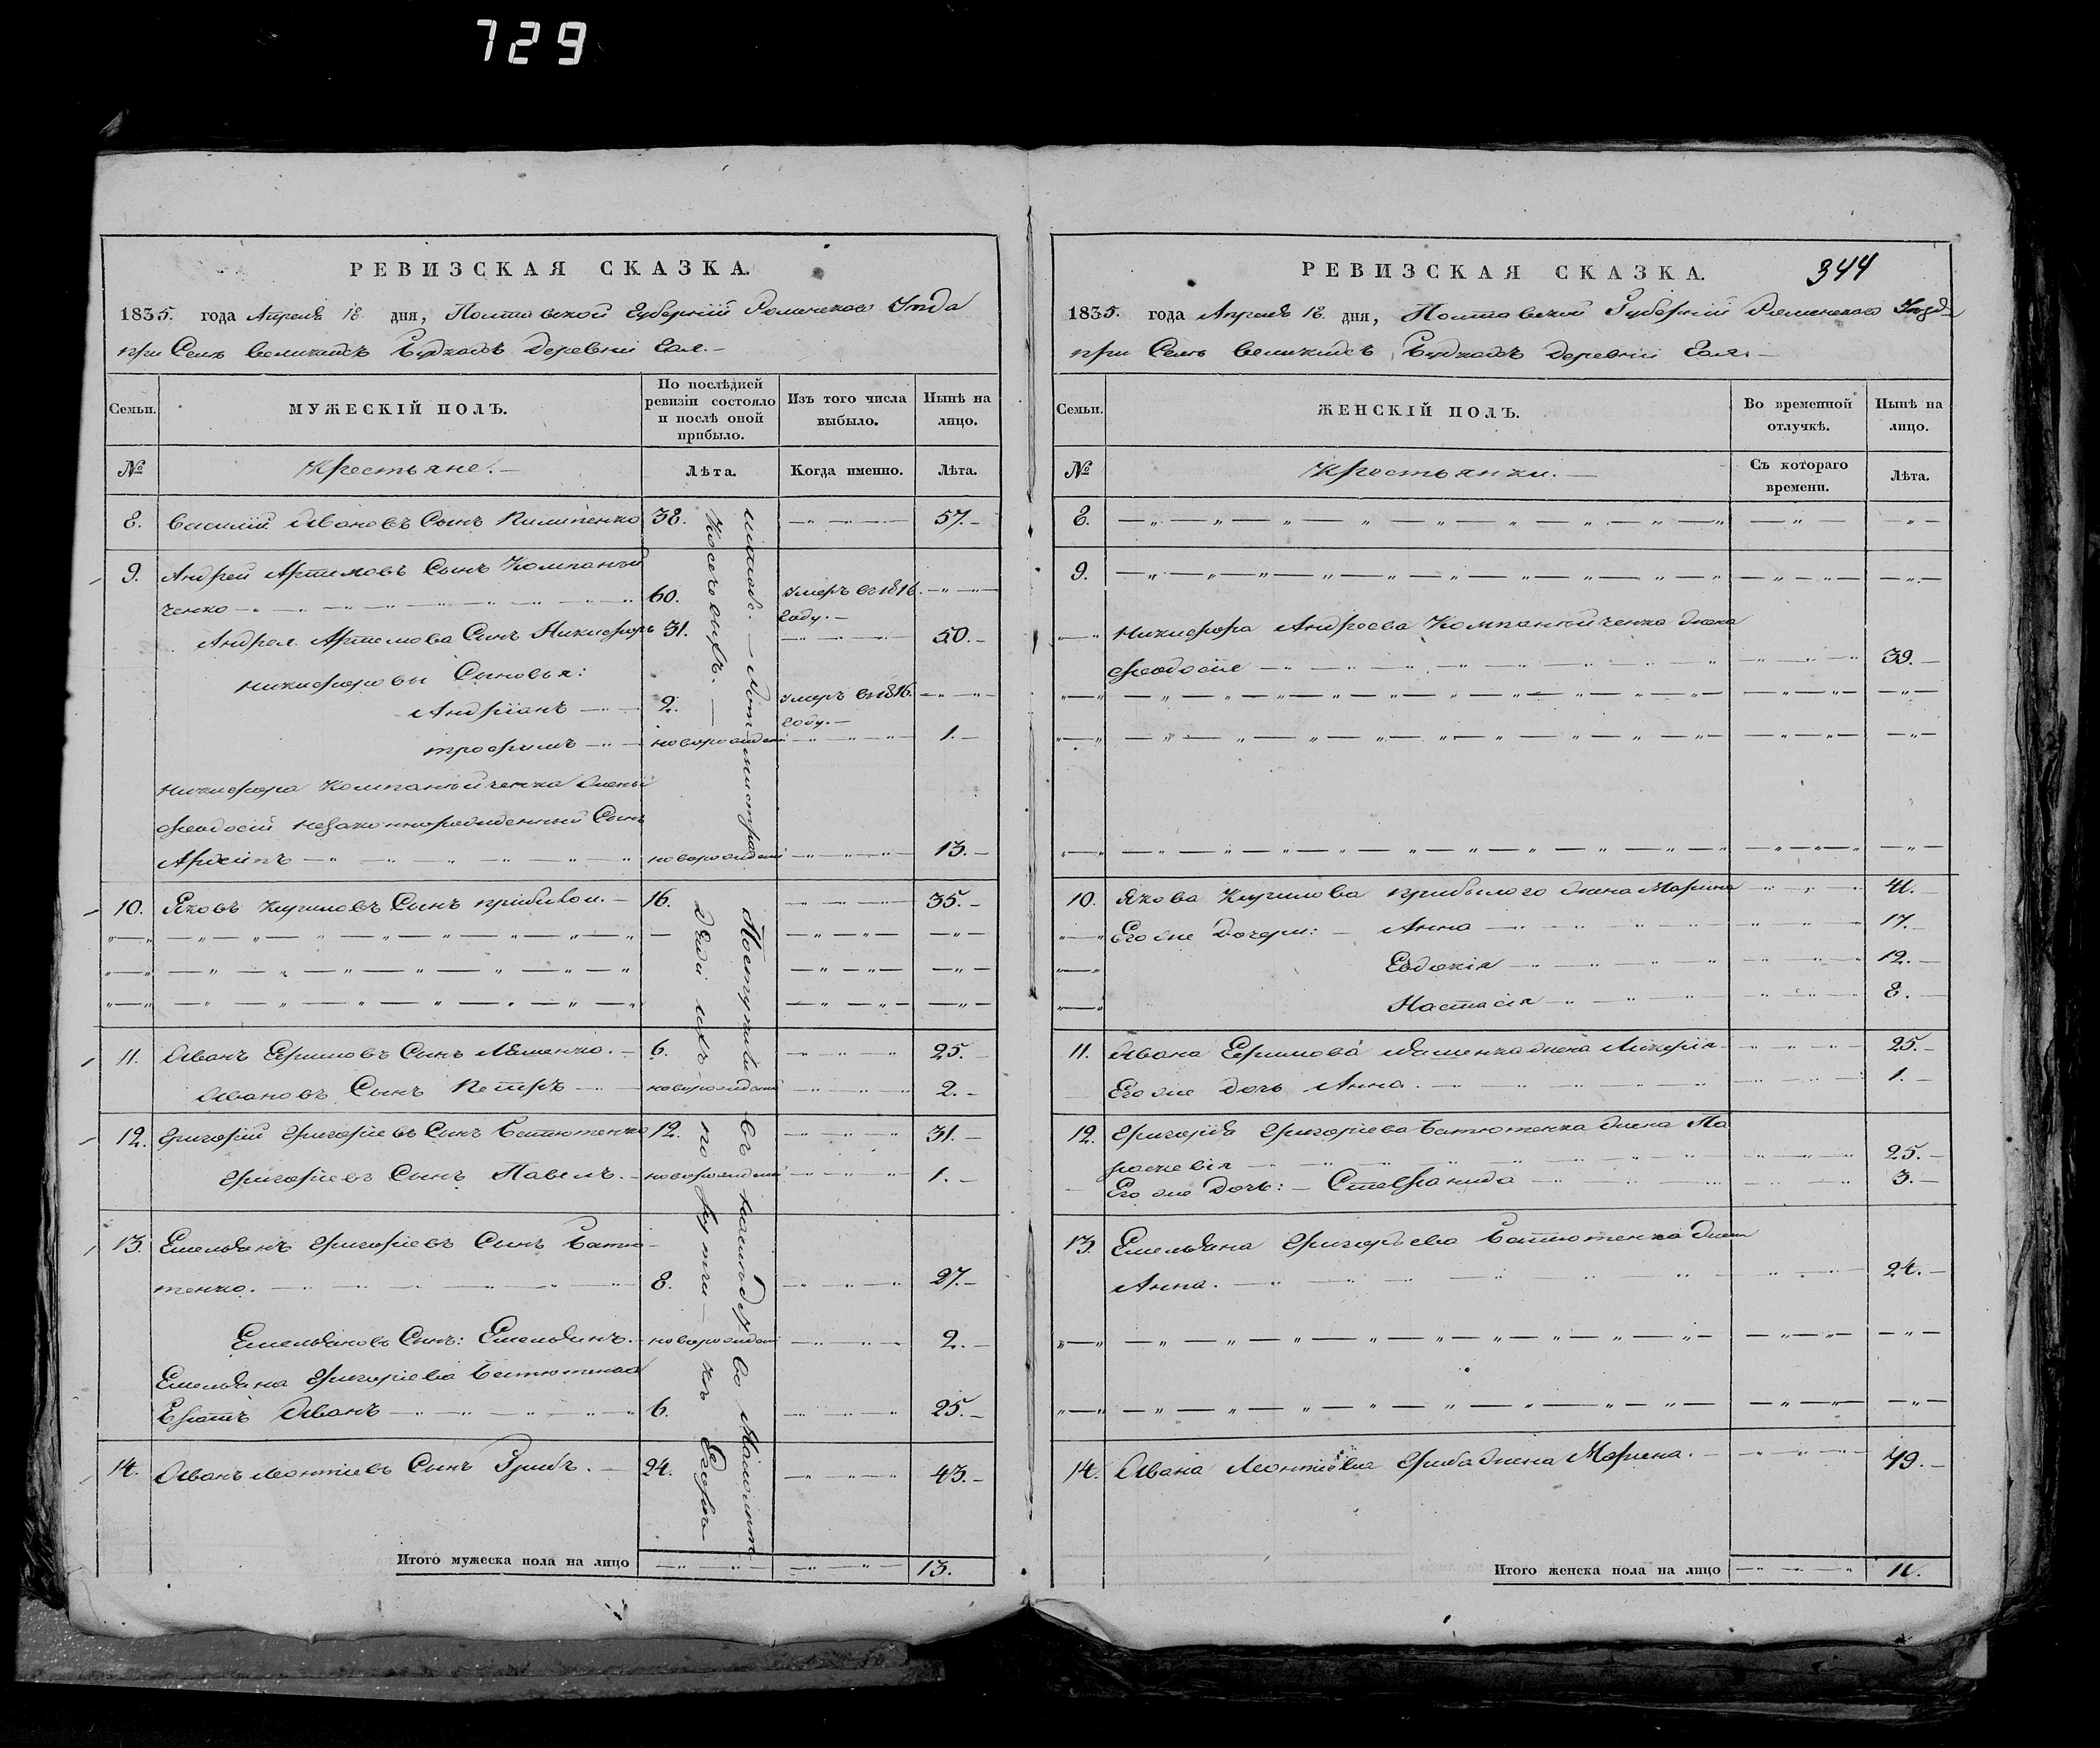 729
РЕВИЗСКАЯ СКАЗКА.
1835. года Апреля 18. дня, Полтавской Губерніи Роменскаго Уѣзда
при Селѣ Великихъ Будкахъ деревни
Семьи.
МУЖЕСКІЙ ПОЛЪ.
По послѣдней ревизіи состояло и послѣ оной прибыло.
Изъ того числа выбыло.
Нынѣ на лицо.
№
Крестьяне.
Лѣта.
Когда именно.
Лѣта.
8. Василій Ивановъ Сынъ Пилипенко 38. 57.
9. Андрей Артемовъ Сынъ Компаній
ченко 60. умеръ въ 1816. году.
Андрея Артемова Сынъ Никифоръ 31. 50.
Никифоровы Сыновья:
Андріанъ 2. умеръ въ 1816. году.
Трофимъ новорожденный 1.
Никифора Компанійченка жены
Феодосіи незаконнорожденный Сынъ
новорожденный 13.
10. Яковъ Кириловъ Сынъ 16. 35.
11. Иванъ Ефимовъ Сынъ Ляшенко. 6. 25.
Ивановъ Сынъ Петръ новорожденный 2.
12. Григорій Григоріевъ Сынъ Батютенко 12. 31.
Григоріевъ Сынъ Павелъ. новорожденный 1.
13. Емельянъ Григоріевъ Сынъ Батю
тенко. 8. 27.
Емельяновъ Сынъ: Емельянъ. новорожденный 2.
Емельяна Григоріева Батютенка
братъ Иванъ 6. 25.
14. Иванъ Леонтіевъ Сынъ Грибъ. 24. 43.
Итого мужеска пола на лицо 13.
РЕВИЗСКАЯ СКАЗКА.
344
1835. года Апреля 18. дня, Полтавской Губерніи Роменскаго Уѣзда
при Селѣ Великихъ Будкахъ деревни
Семьи.
ЖЕНСКІЙ ПОЛЪ.
Во временной отлучкѣ.
Нынѣ на лицо.
№
Крестьянки.
Съ котораго времени.
Лѣта.
8.
9.
Никифора Андреева Компанійченка жена
Феодосія 39.
10. Якова Кирилова жена Марина 41.
Его же дочери: Анна 17.
Евдокія 12.
Настасія 8.
11. Ивана Ефимова Ляшенка жена Ликерія 25.
Его же дочь Анна. 1.
12. Григорія Григоріева Батютенка жена Па
раскевія 25.
Его же дочь: Стефанида 3.
13. Емельяна Григорьева Батютенка жена
Анна. 24.
14. Ивана Леонтіева Гриба жена Марина. 49.
Итого женска пола на лицо 11.